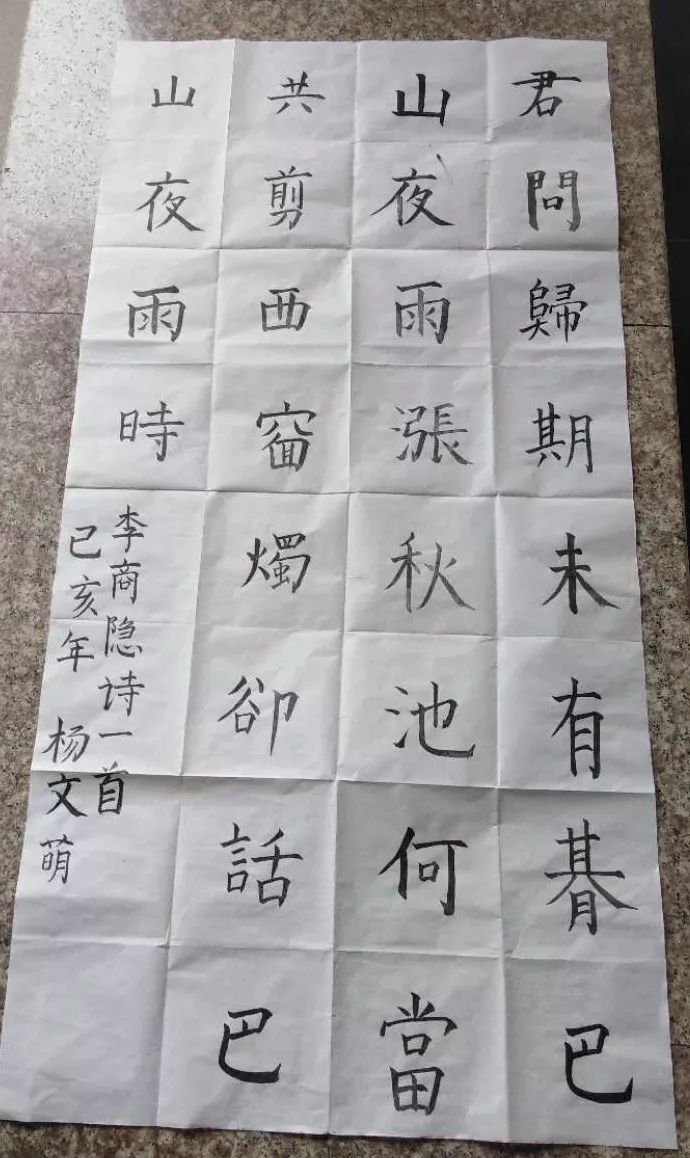 君問歸期未有朞巴
山夜雨漲秋池何當
共剪西窗燭卻話巴
山夜雨時
李商隐诗一首
己亥年 杨文萌